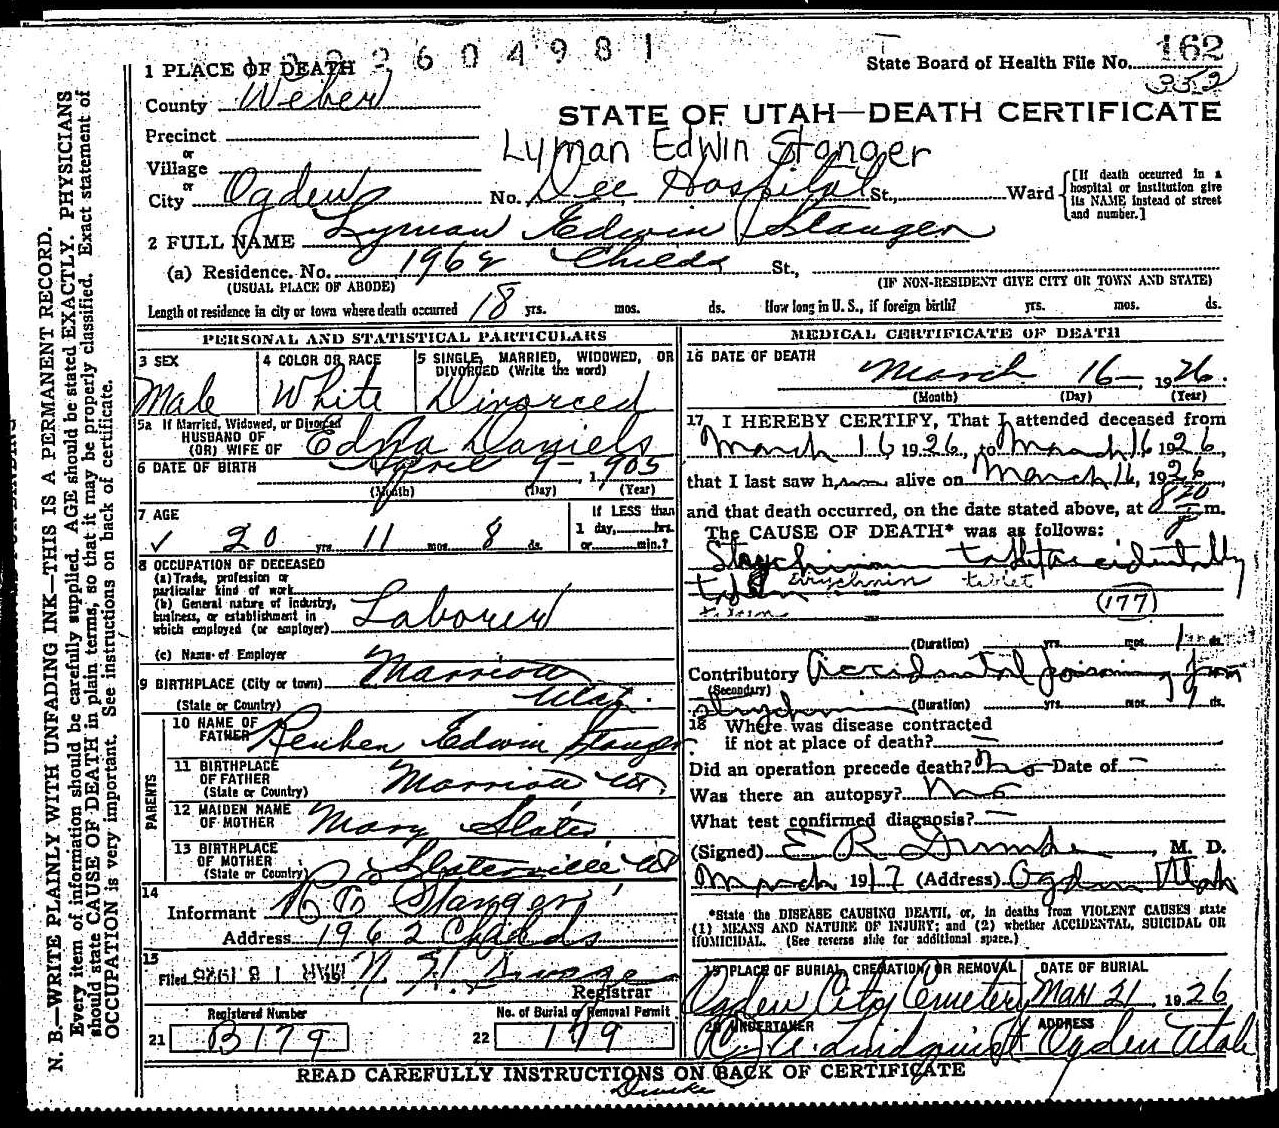 2604981
State Board of Health File No. 162
352
1 PLACE OF DEATH
County Weber
STATE OF UTAH—DEATH CERTIFICATE
Precinct
or
Lyman Edwin Stanger
Village
or
City Ogden No. Dee Hospital St., Ward
[If death occurred in a hospital or institution give its NAME instead of street and number.]
2 FULL NAME Lyman Edwin Stanger
(a) Residence. No. 1962 Childs St.,
(USUAL PLACE OF ABODE) (IF NON-RESIDENT GIVE CITY OR TOWN AND STATE)
Length of residence in city or town where death occurred 18 yrs. mos. ds. How long in U. S., if foreign birth? yrs. mos. ds.
PERSONAL AND STATISTICAL PARTICULARS
3 SEX
Male
4 COLOR OR RACE
White
5 SINGLE, MARRIED, WIDOWED, OR DIVORCED (Write the word)
Divorced
5a If Married, Widowed, or Divorced
HUSBAND OF
(OR) WIFE OF Edna Daniels
6 DATE OF BIRTH April 9 - 1,905
(Month) (Day) (Year)
7 AGE
✓ 20 yrs. 11 mos. 8 ds.
If LESS than
1 day, hrs.
or min.?
8 OCCUPATION OF DECEASED
(a) Trade, profession or
particular kind of work
(b) General nature of industry,
business, or establishment in
which employed (or employer) Laborer
(c) Name of Employer
9 BIRTHPLACE (City or town) Marriott
(State or Country) Utah.
PARENTS
10 NAME OF
FATHER Reuben Edwin Stanger
11 BIRTHPLACE
OF FATHER
(State or Country) Marriott Ut.
12 MAIDEN NAME
OF MOTHER Mary Slater
13 BIRTHPLACE
OF MOTHER
(State or Country) Slaterville Ut
14
Informant R E Stanger
Address 1962 Childs
15
Filed MAR 18 1926
Registrar
Registered Number
21 B179
No. of Burial or Removal Permit
22 179
MEDICAL CERTIFICATE OF DEATH
16 DATE OF DEATH
March 16 - 1926.
(Month) (Day) (Year)
17 I HEREBY CERTIFY, That I attended deceased from
March 16 1926, to March 16 1926,
that I last saw him alive on March 16, 1926,
and that death occurred, on the date stated above, at 8 20 P m.
The CAUSE OF DEATH* was as follows:
Strychnin tablet accidentally
taken strychnin tablet
taken
(177)
(Duration) yrs. mos. 1 ds.
Contributory Accidental poisoning from
(Secondary)
strychnin (Duration) yrs. mos. 1 ds.
18 Where was disease contracted
if not at place of death? —
Did an operation precede death? No Date of —
Was there an autopsy? No
What test confirmed diagnosis? —
(Signed) E R Dumke, M. D.
March 1917 (Address) Ogden Utah
*State the DISEASE CAUSING DEATH, or, in deaths from VIOLENT CAUSES state
(1) MEANS AND NATURE OF INJURY; and (2) whether ACCIDENTAL, SUICIDAL OR
HOMICIDAL. (See reverse side for additional space.)
19 PLACE OF BURIAL, CREMATION, OR REMOVAL
Ogden City Cemetery
DATE OF BURIAL
Mar 21, 1926
20 UNDERTAKER
C. A. Lindquist
ADDRESS
Ogden Utah
READ CAREFULLY INSTRUCTIONS ON BACK OF CERTIFICATE
Dumke
N. B.—WRITE PLAINLY WITH UNFADING INK—THIS IS A PERMANENT RECORD.
Every item of information should be carefully supplied. AGE should be stated EXACTLY. PHYSICIANS
should state CAUSE OF DEATH in plain terms, so that it may be properly classified. Exact statement of
OCCUPATION is very important. See instructions on back of certificate.